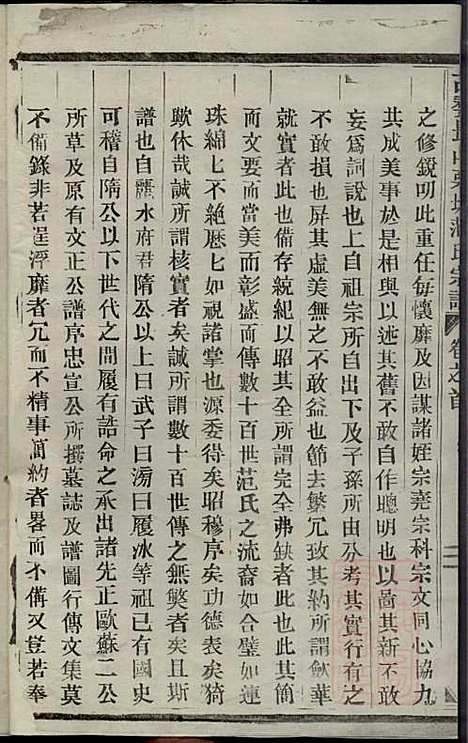 之修鋭明此重任每懷靡及因謀諸姪宗堯宗科宗文同心協力
其成美事於是相與以述其舊不敢自作聰明也以啚其新不敢
妄為詞說也上自祖宗所自出下及子孫所由分考其實行有之
不敢損也屏其虛美無之不敢益也節去繁冗致其約所謂歛華
就實者此也備存統紀以昭其全所謂完全弗缺者此也此其簡
而文要而當美而彰盛而傳數十百世范氏之流裔如合璧如連
珠綿七不絕歷七如視諸掌也源委得矣昭穆序矣功德表矣猗
歟休哉誠所謂核實者矣誠所謂數十百世傳之無獘者矣且斯
譜也自麗水府君隋公以上曰武子曰滂曰履冰等祖已有國史
可稽自隋公以下世代之間履有誥命之承出諸先正歐蘇二公
所草及原有文正公譜序忠宣公所撰墓誌及譜圖行傳文集莫
不備錄非若逞浮靡者冗而不精事萵約者畧而不俻又豈若奉
范氏宗譜 卷之首